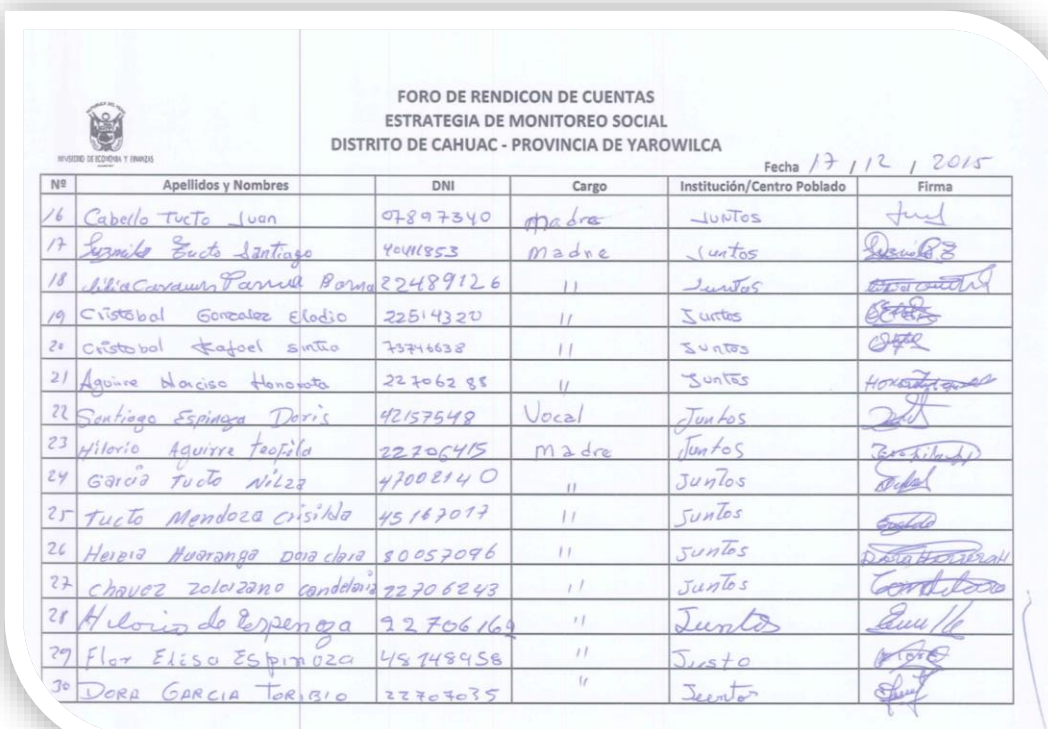 FORO DE RENDICON DE CUENTAS
ESTRATEGIA DE MONITOREO SOCIAL
DISTRITO DE CAHUAC - PROVINCIA DE YAROWILCA
MINISTERIO DE ECONOMIA Y FINANZAS
Fecha 17 / 12 / 2015
Nº Apellidos y Nombres DNI Cargo Institución/Centro Poblado Firma
16 Cabello Tucto Juan 07897340 madre Juntos
17 Tucto Santiago madre Juntos
18 22489126 11 Juntos
19 Cristobal Gonzalez Elodio 22514320 11 Juntos
20 Cristobal Rafael sintia 73746638 11 Juntos
21 Aguirre Narciso Honorata 22706288 11 Juntos
22 Santiago Espinoza Doris 42157548 Vocal Juntos
23 Hilario Aguirre Teofila 22706415 madre Juntos
24 Garcia Tucto Nilza 47002140 11 Juntos
25 Tucto Mendoza crisilda 45167017 11 Juntos
26 Huaranga Dora clara 80057096 11 Juntos
27 chavez zolorzano candelaria 22706243 11 Juntos
28 de Espenoza 11 Juntos
29 Flor Elisa Espinoza 48148958 11 Justo
30 DORA GARCIA TORIBIO 22707035 11 Juntos